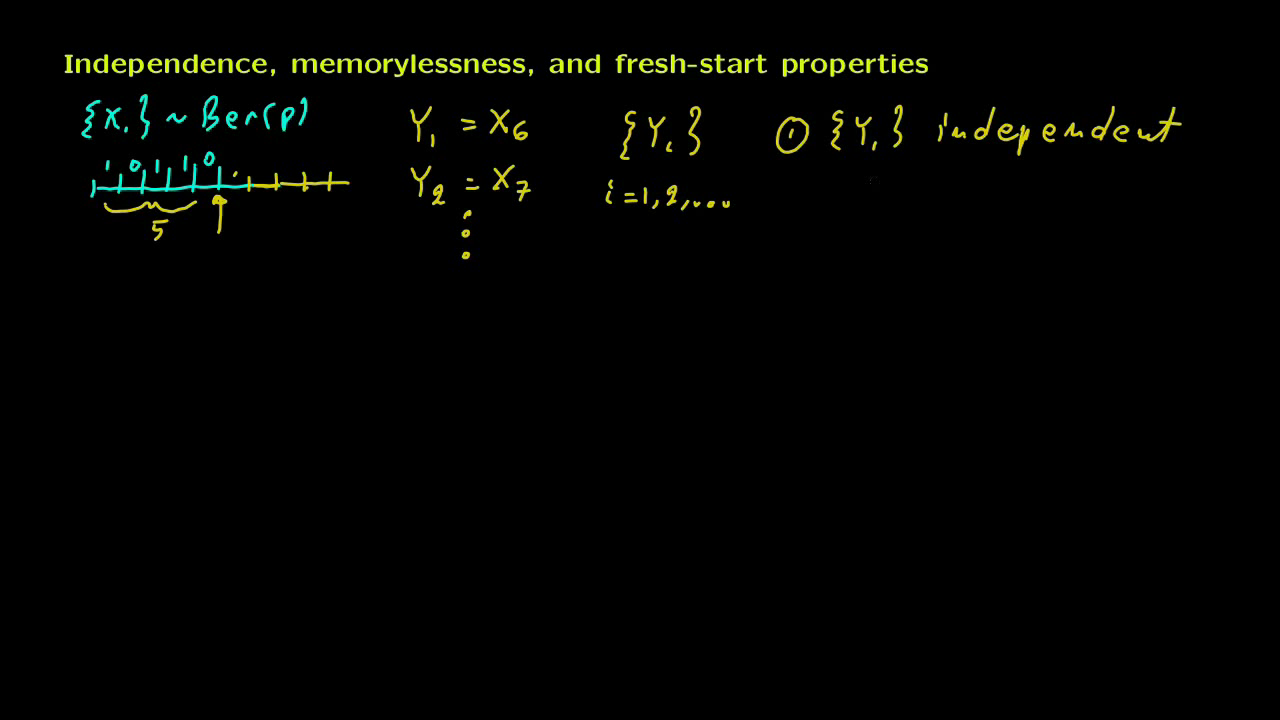 Independence, memorylessness, and fresh-start properties
{X_i} ~ Ber(p)
1 0 1 1 0
5
Y_1 = X_6
Y_2 = X_7
{Y_i}
i = 1, 2, ...
① {Y_i} independent